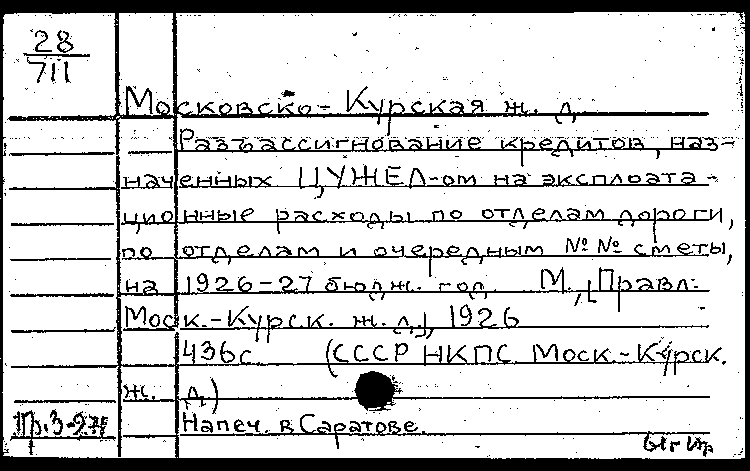 28
711
Московско-Курская ж. д.
Разъассигнование кредитов, наз-
наченных ЦУЖЕЛ-ом на эксплоата-
ционные расходы по отделам дороги,
по отделам и очередным №№ сметы,
на 1926-27 бюдж. год. М., [Правл.
Моск.-Курск. ж. д.], 1926
436с. (СССР НКПС Моск.-Курск.
ж. д.)
Напеч. в Саратове.